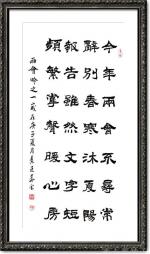 今年兩會不尋常
辭别春寒沐夏陽
報告雖然文字短
頻繁掌聲暖心房
兩會吟之一歲在庚子夏月書